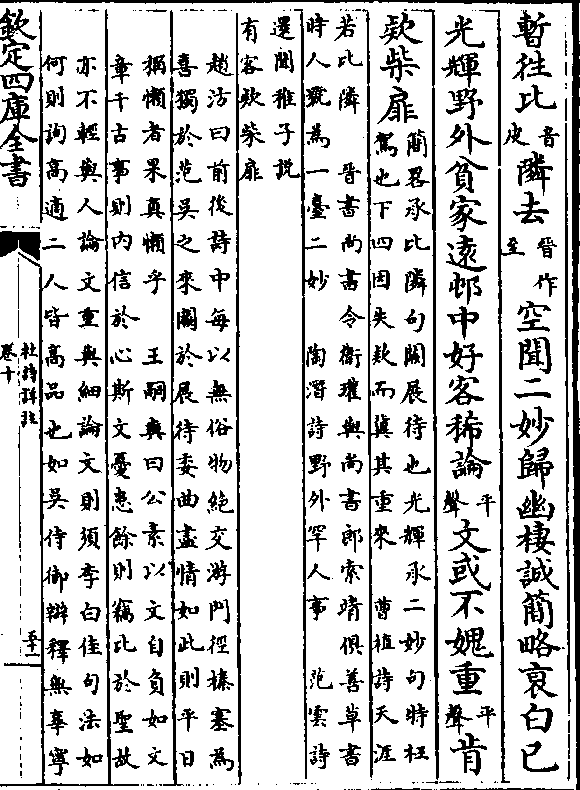 暫往比音皮隣去晉作至空聞二妙歸幽棲誠簡略衰白已
光輝野外貧家遠邨中好客稀論平聲文或不媿重平聲肯
欵柴扉
簡畧承比隣句闗展待也光輝承二妙句時枉
駕也下四因失欵而冀其重來 曹植詩天涯
若比隣 晉書尚書令衛瓘與尚書郎索靖俱善草書
時人號為一臺二妙 陶潛詩野外罕人事 范雲詩
還聞稚子説
有客欵柴扉
趙汸曰前後詩中每以無俗物絶交游門徑榛塞為
喜獨於范吳之來闗於展待委曲盡情如此則平日
稱懶者果真懶乎 王嗣奭曰公素以文自負如文
章千古事則内信於心斯文憂患餘則竊比於聖故
亦不輕與人論文重與細論文則須李白佳句法如
何則詢高適二人皆高品也如吳侍御辯釋無辜寧
欽定四庫全書
杜詩詳註
卷十